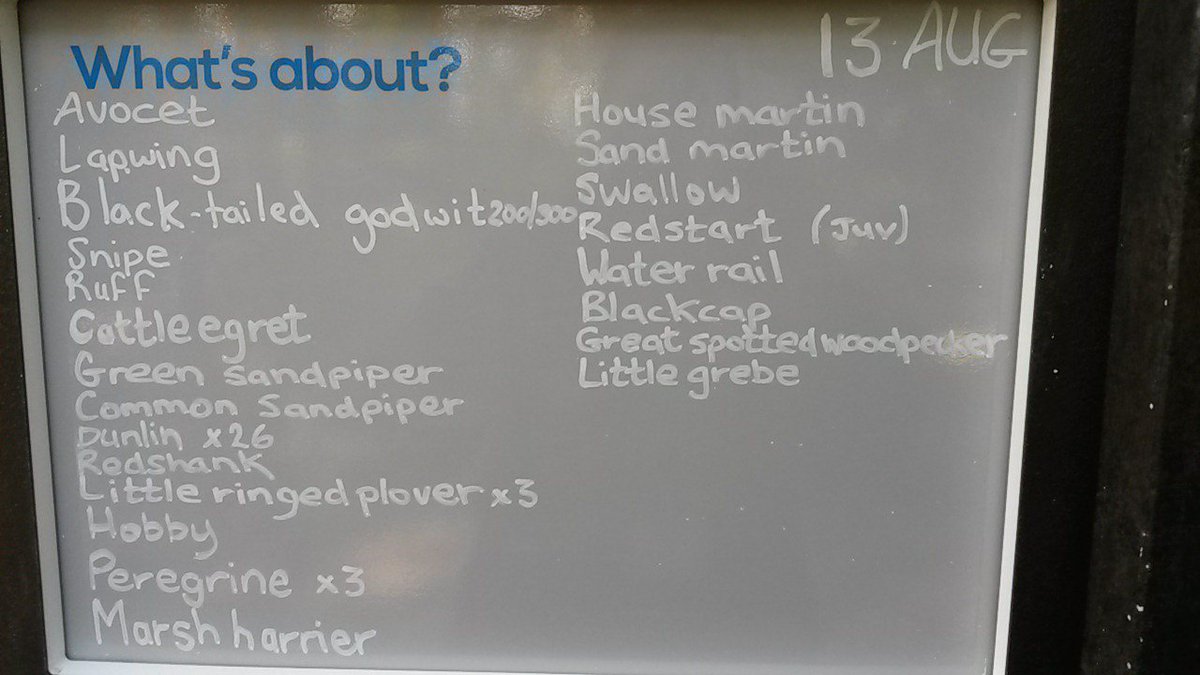 What's about?
13 AUG
Avocet
Lapwing
Black-tailed godwit 200/300
Snipe
Ruff
Cattle egret
Green sandpiper
Common Sandpiper
Dunlin x26
Redshank
Little ringed plover x3
Hobby
Peregrine x3
Marsh harrier
House martin
Sand martin
Swallow
Redstart (Juv)
Water rail
Blackcap
Great spotted woodpecker
Little grebe